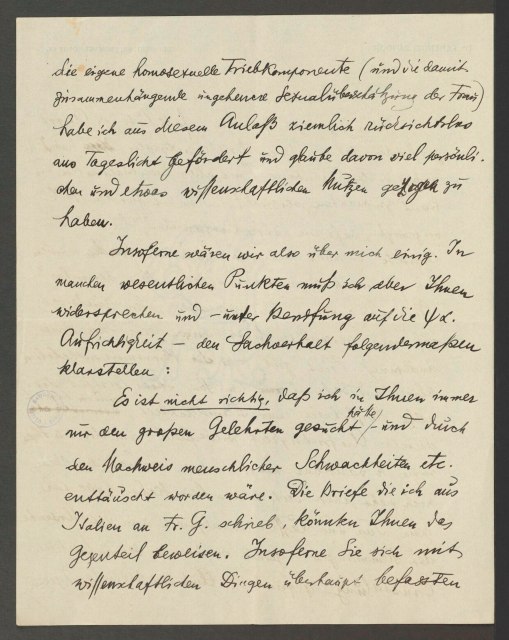 die eigene homosexuelle Triebkomponente (und die damit
zusammenhängende ungeheuere Sexualüberschätzung der Frau)
habe ich aus diesem Anlaß ziemlich rücksichtslos
ans Tageslicht gefördert und glaube davon viel persönli-
chen und etwas wissenschaftlichen Nutzen gezogen zu
haben.
Insoferne wären wir also über mich einig. In
manchen wesentlichen Punkten muß ich aber Ihnen
widersprechen und – unter Berufung auf die ψα.
Aufrichtigkeit – den Sachverhalt folgendermaßen
klarstellen:
Es ist nicht richtig, daß ich in Ihnen immer
nur den großen Gelehrten gesucht hätte – und durch
den Nachweis menschlicher Schwachheiten etc.
enttäuscht worden wäre. Die Briefe die ich aus
Italien an Fr. G. schrieb, könnten Ihnen das
Gegenteil beweisen. Insoferne Sie sich mit
wissenschaftlichen Dingen überhaupt befassten